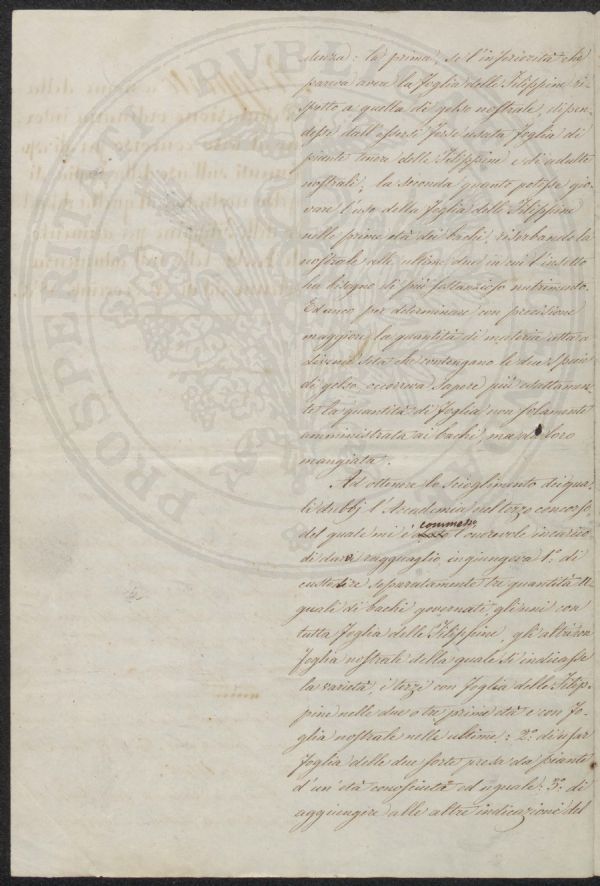 denza: la prima, se l'inferiorità che
pareva avere la foglia delle Filippine ri-
spetto a quella di gelso nostrale, dipen-
desse dall'essersi forse usata foglia di
piante tenere delle Filippine e di adulte
nostrali; la seconda quanto potesse gio-
vare l'uso della foglia delle Filippine
nelle prime età dei bachi, riserbando la
nostrale alle ultime due in cui l'insetto
ha bisogno di più sostanzioso nutrimento.
Ed anco per determinare con precisione
maggiore la quantità di materia atta a
divenir seta che contengano le due specie
di gelso, occorreva sapere più esattamen-
te la quantità di foglia non solamente
amministrata ai bachi, ma da loro
mangiata.
Ad ottenere lo scioglimento dei qua-
li dubbj l'Accademia nel terzo concorso,
del quale mi è commesso l'onorevole incarico
di dare ragguaglio ingiungeva 1.º di
custodire separatamente tre quantità e-
guali di bachi governati, gli uni con
tutta foglia delle Filippine, gli altri con
foglia nostrale della quale si indicasse
la varietà, i terzi con foglia delle Filip-
pine nelle due o tre prime età e con fo-
glia nostrale nelle ultime: 2.º di usar
foglia delle due sorte presa da piante
d'un'età conosciuta ed eguale: 3.º di
aggiungere alle altre indicazioni del
PROSPERITATI PUBL